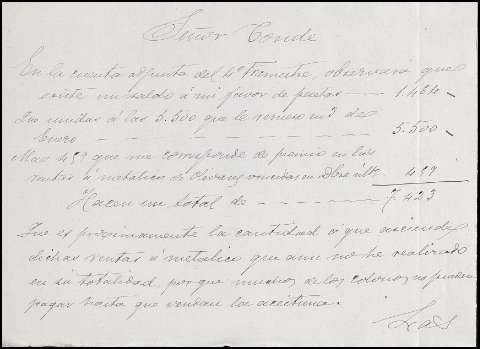 Señor Conde
En la cuenta adjunta del 4º Trimestre, observará que
existe un saldo á mi favor de pesetas — 1.464
Que unidas á las 5.500 que le remeso en 1 de
Enero — 5.500
Mas 459 que me corresponde de premio en las
rentas á metálico de vencidas en Dbre últº 459
Hacen un total de — 7.423
Que es proximamente la cantidad á que asciende
dichas rentas á metalico que aun no he realizado
en su totalidad, por que muchos de los colonos no pueden
pagar hasta que vendan la aceituna.